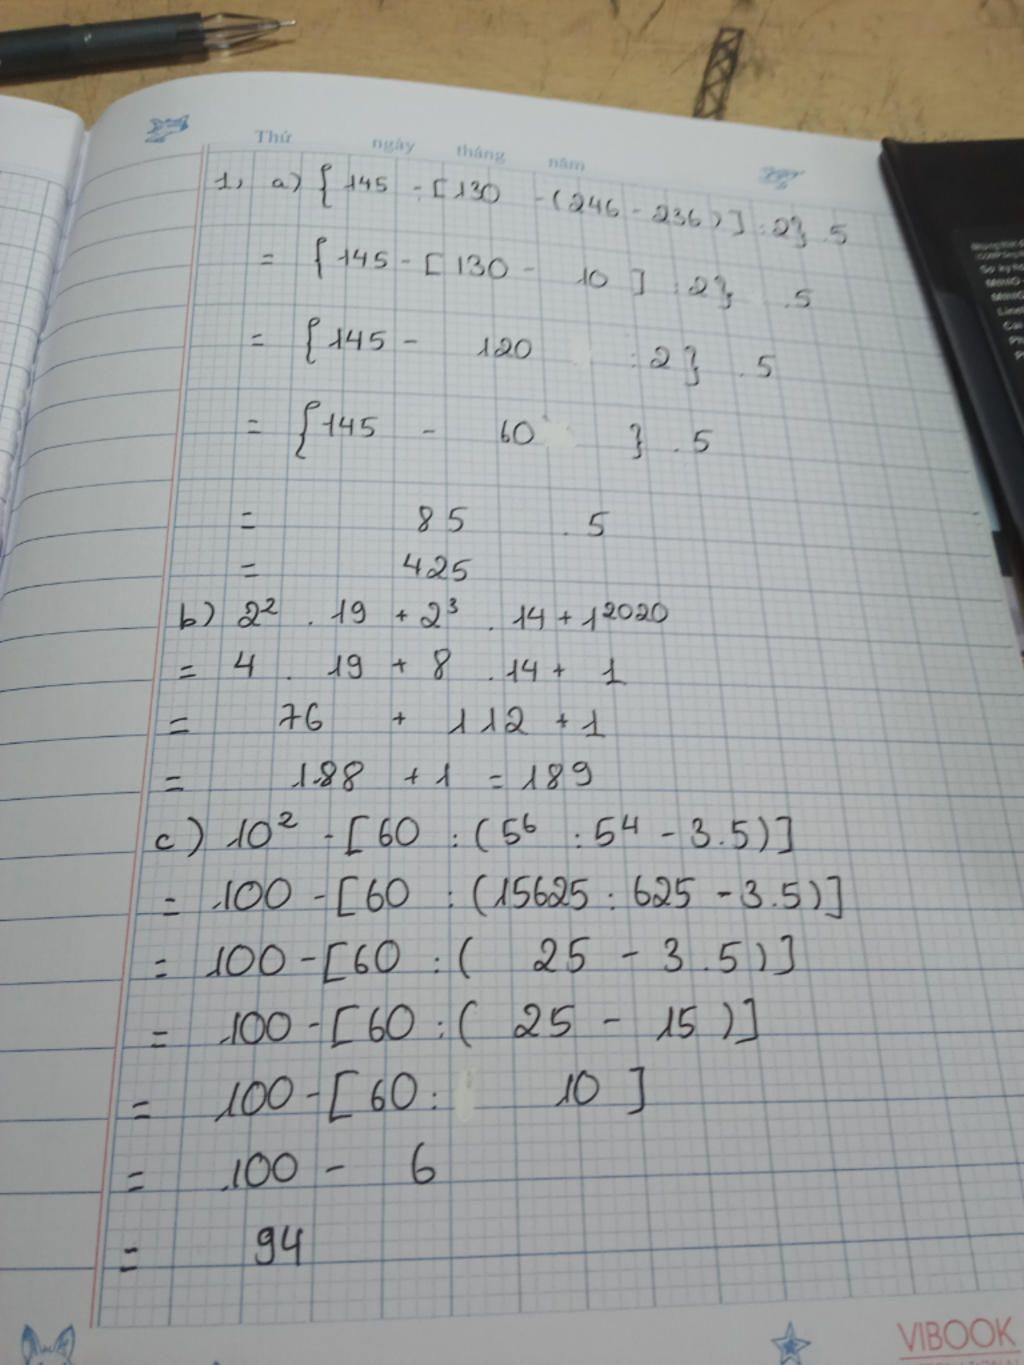 Thứ ngày tháng năm
1, a) { 145 - [ 130 - ( 246 - 236 ) ] : 2 } . 5
= { 145 - [ 130 - 10 ] : 2 } . 5
= { 145 - 120 : 2 } . 5
= { 145 - 60 } . 5
= 85 . 5
= 425
b) 2² . 19 + 2³ . 14 + 1²⁰²⁰
= 4 . 19 + 8 . 14 + 1
= 76 + 112 + 1
= 188 + 1 = 189
c) 10² - [ 60 : ( 5⁶ : 5⁴ - 3.5 ) ]
= 100 - [ 60 : ( 15625 : 625 - 3.5 ) ]
= 100 - [ 60 : ( 25 - 3.5 ) ]
= 100 - [ 60 : ( 25 - 15 ) ]
= 100 - [ 60 : 10 ]
= 100 - 6
= 94
VIBOOK